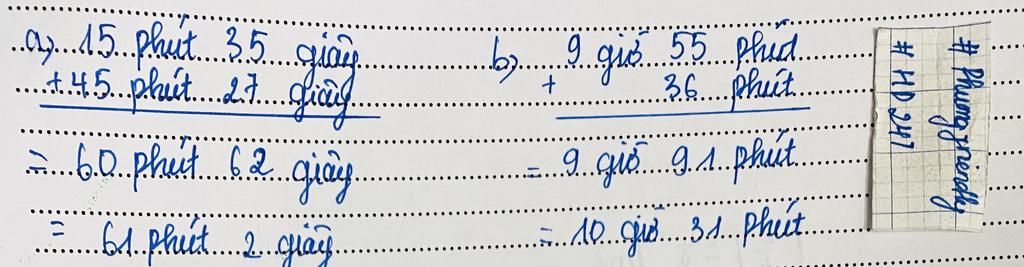 a) 15 phút 35 giây
+ 45 phút 27 giây
= 60 phút 62 giây
= 61 phút 2 giây
b) 9 giờ 55 phút
+ 36 phút
= 9 giờ 91 phút
= 10 giờ 31 phút
# Phungfriendly
# HD247